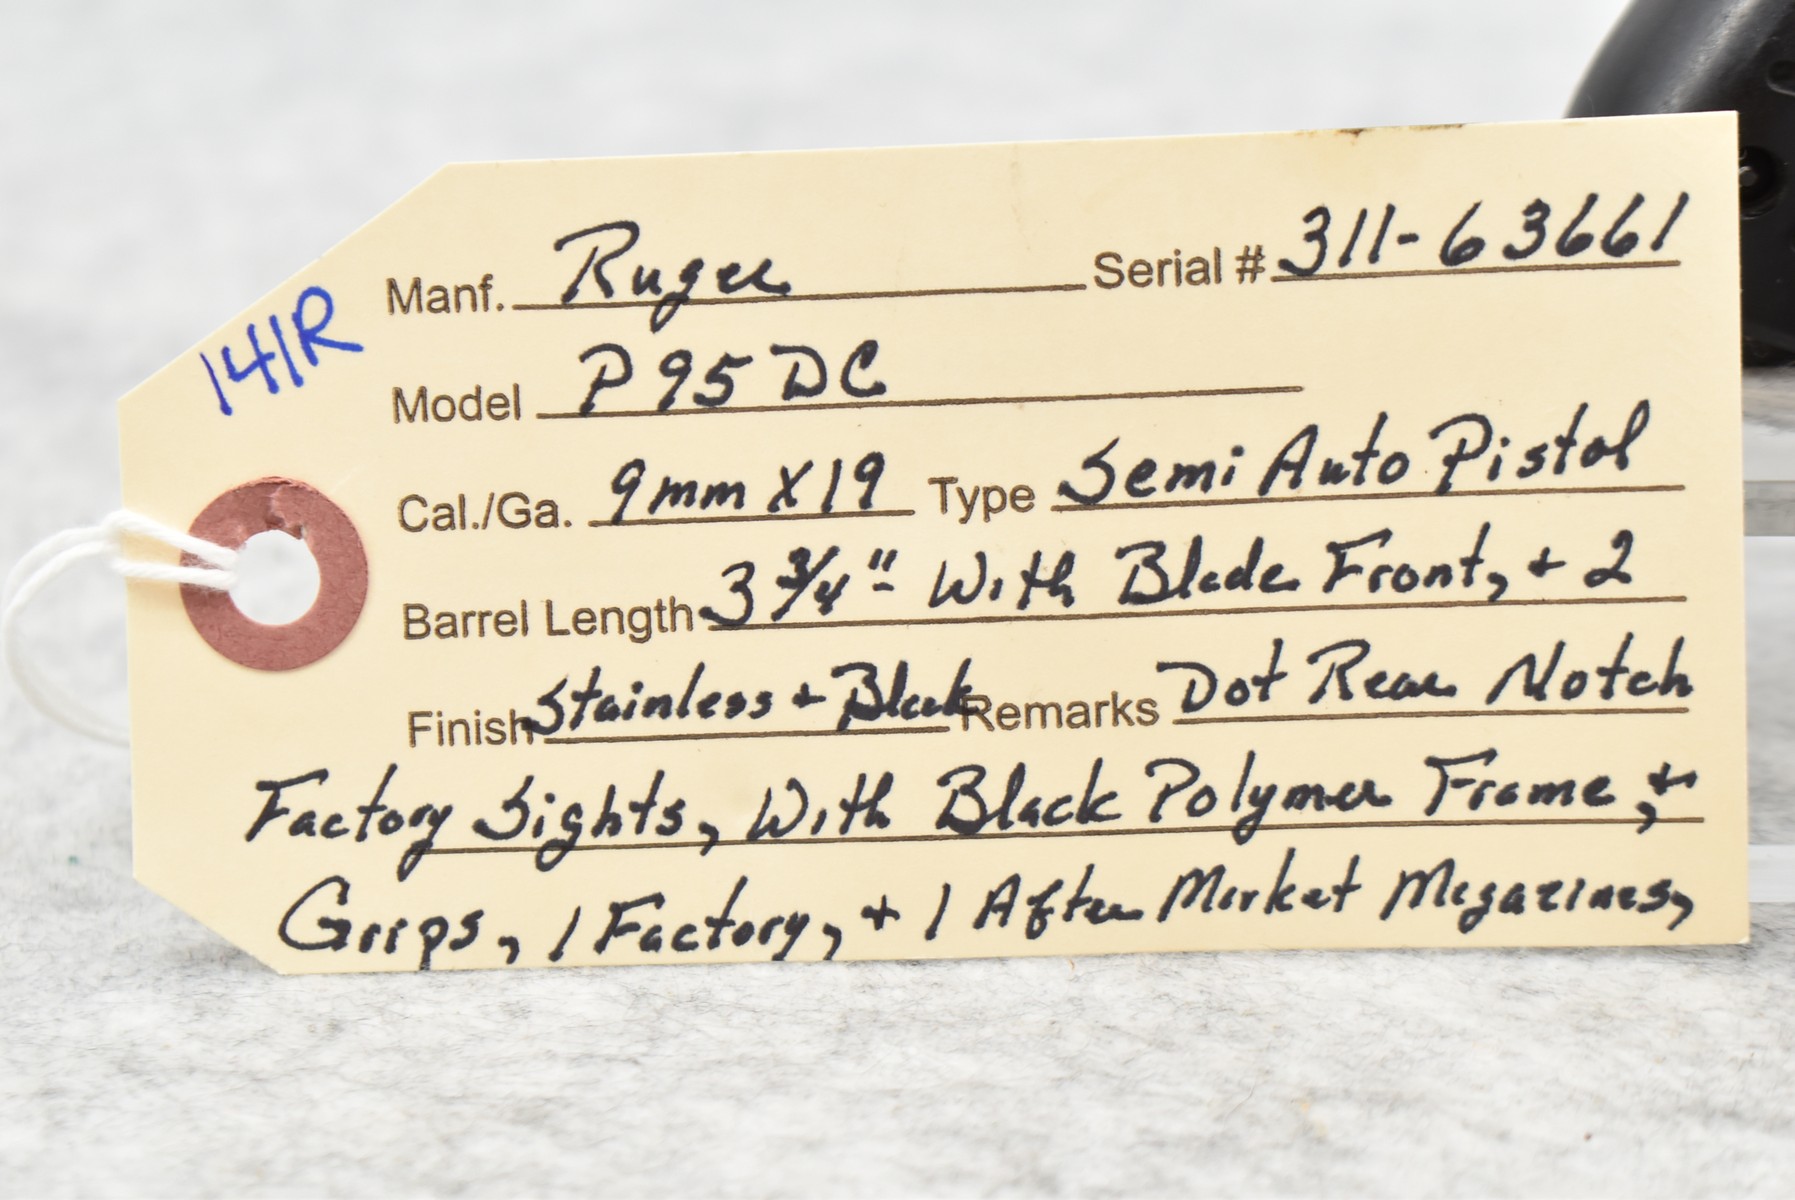 141R
Manf. Ruger Serial # 311-63661
Model P95DC
Cal./Ga. 9mm X19 Type Semi Auto Pistol
Barrel Length 3 3/4" With Blade Front, + 2
Finish Stainless + Black Remarks Dot Rear Notch
Factory Sights, With Black Polymer Frame, +
Grips, 1 Factory, + 1 After Market Magazines,